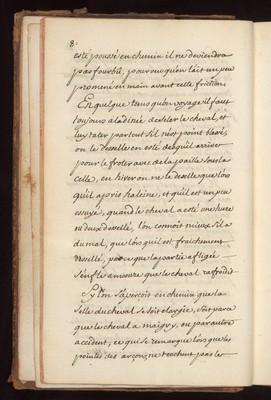 8.
esté poussé en chemin il ne deviendra
pas fourbû, pourveu qu'on l'ait un peu
promené en main avant cette friction.
En quelque tems qu'on voyage il faut
toujours a la dinée deseler le cheval, et
luy tater par tout s'il n'est point blessé,
on le desselle en esté dès qu'il arrive
pour le froter avec de la paille sous la
selle, en hiver on ne le deselle que lors
qu'il a pris haleine, et qu'il est un peu
essuyé, quand le cheval a esté une heure
ou deux desselé, l'on connoit mieux s'il a
du mal, que lors qu'il est fraichement
desselé, parce que la partie afligée
s'enfle a mesure que le cheval rafroidit
Sy l'on s'aperçoit en chemin que la
selle du cheval se soit elargie, soit parce
que le cheval a maigry, ou par autre
accident, ce qui se remarque lors que les
pointes des arçons ne touchent pas les